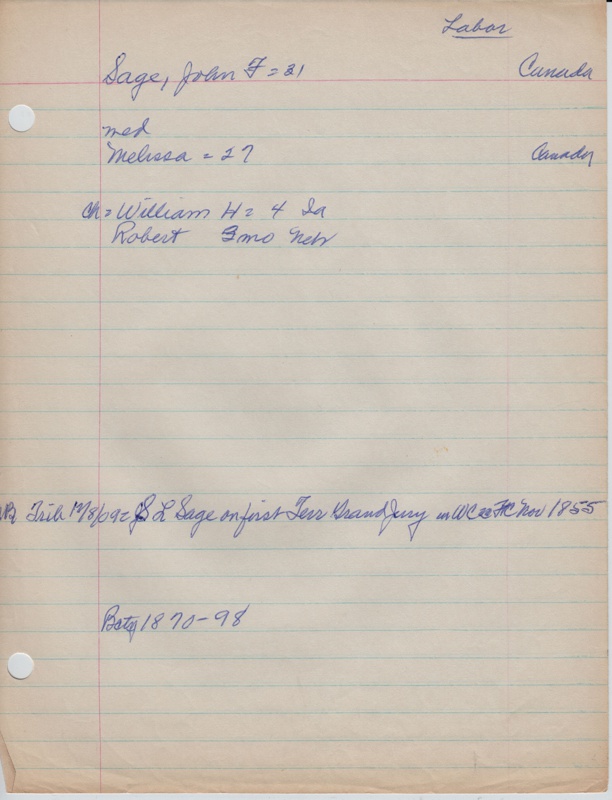 Labor
Sage, John F = 31 Canada
med
Melissa = 27 Canada
ch = William H = 4 Ia
Robert 3mo Nebr
Trib 12/8/09 = S L Sage on first Terr Grand Jury in WCo Nov 1855
Bcty 1870-98